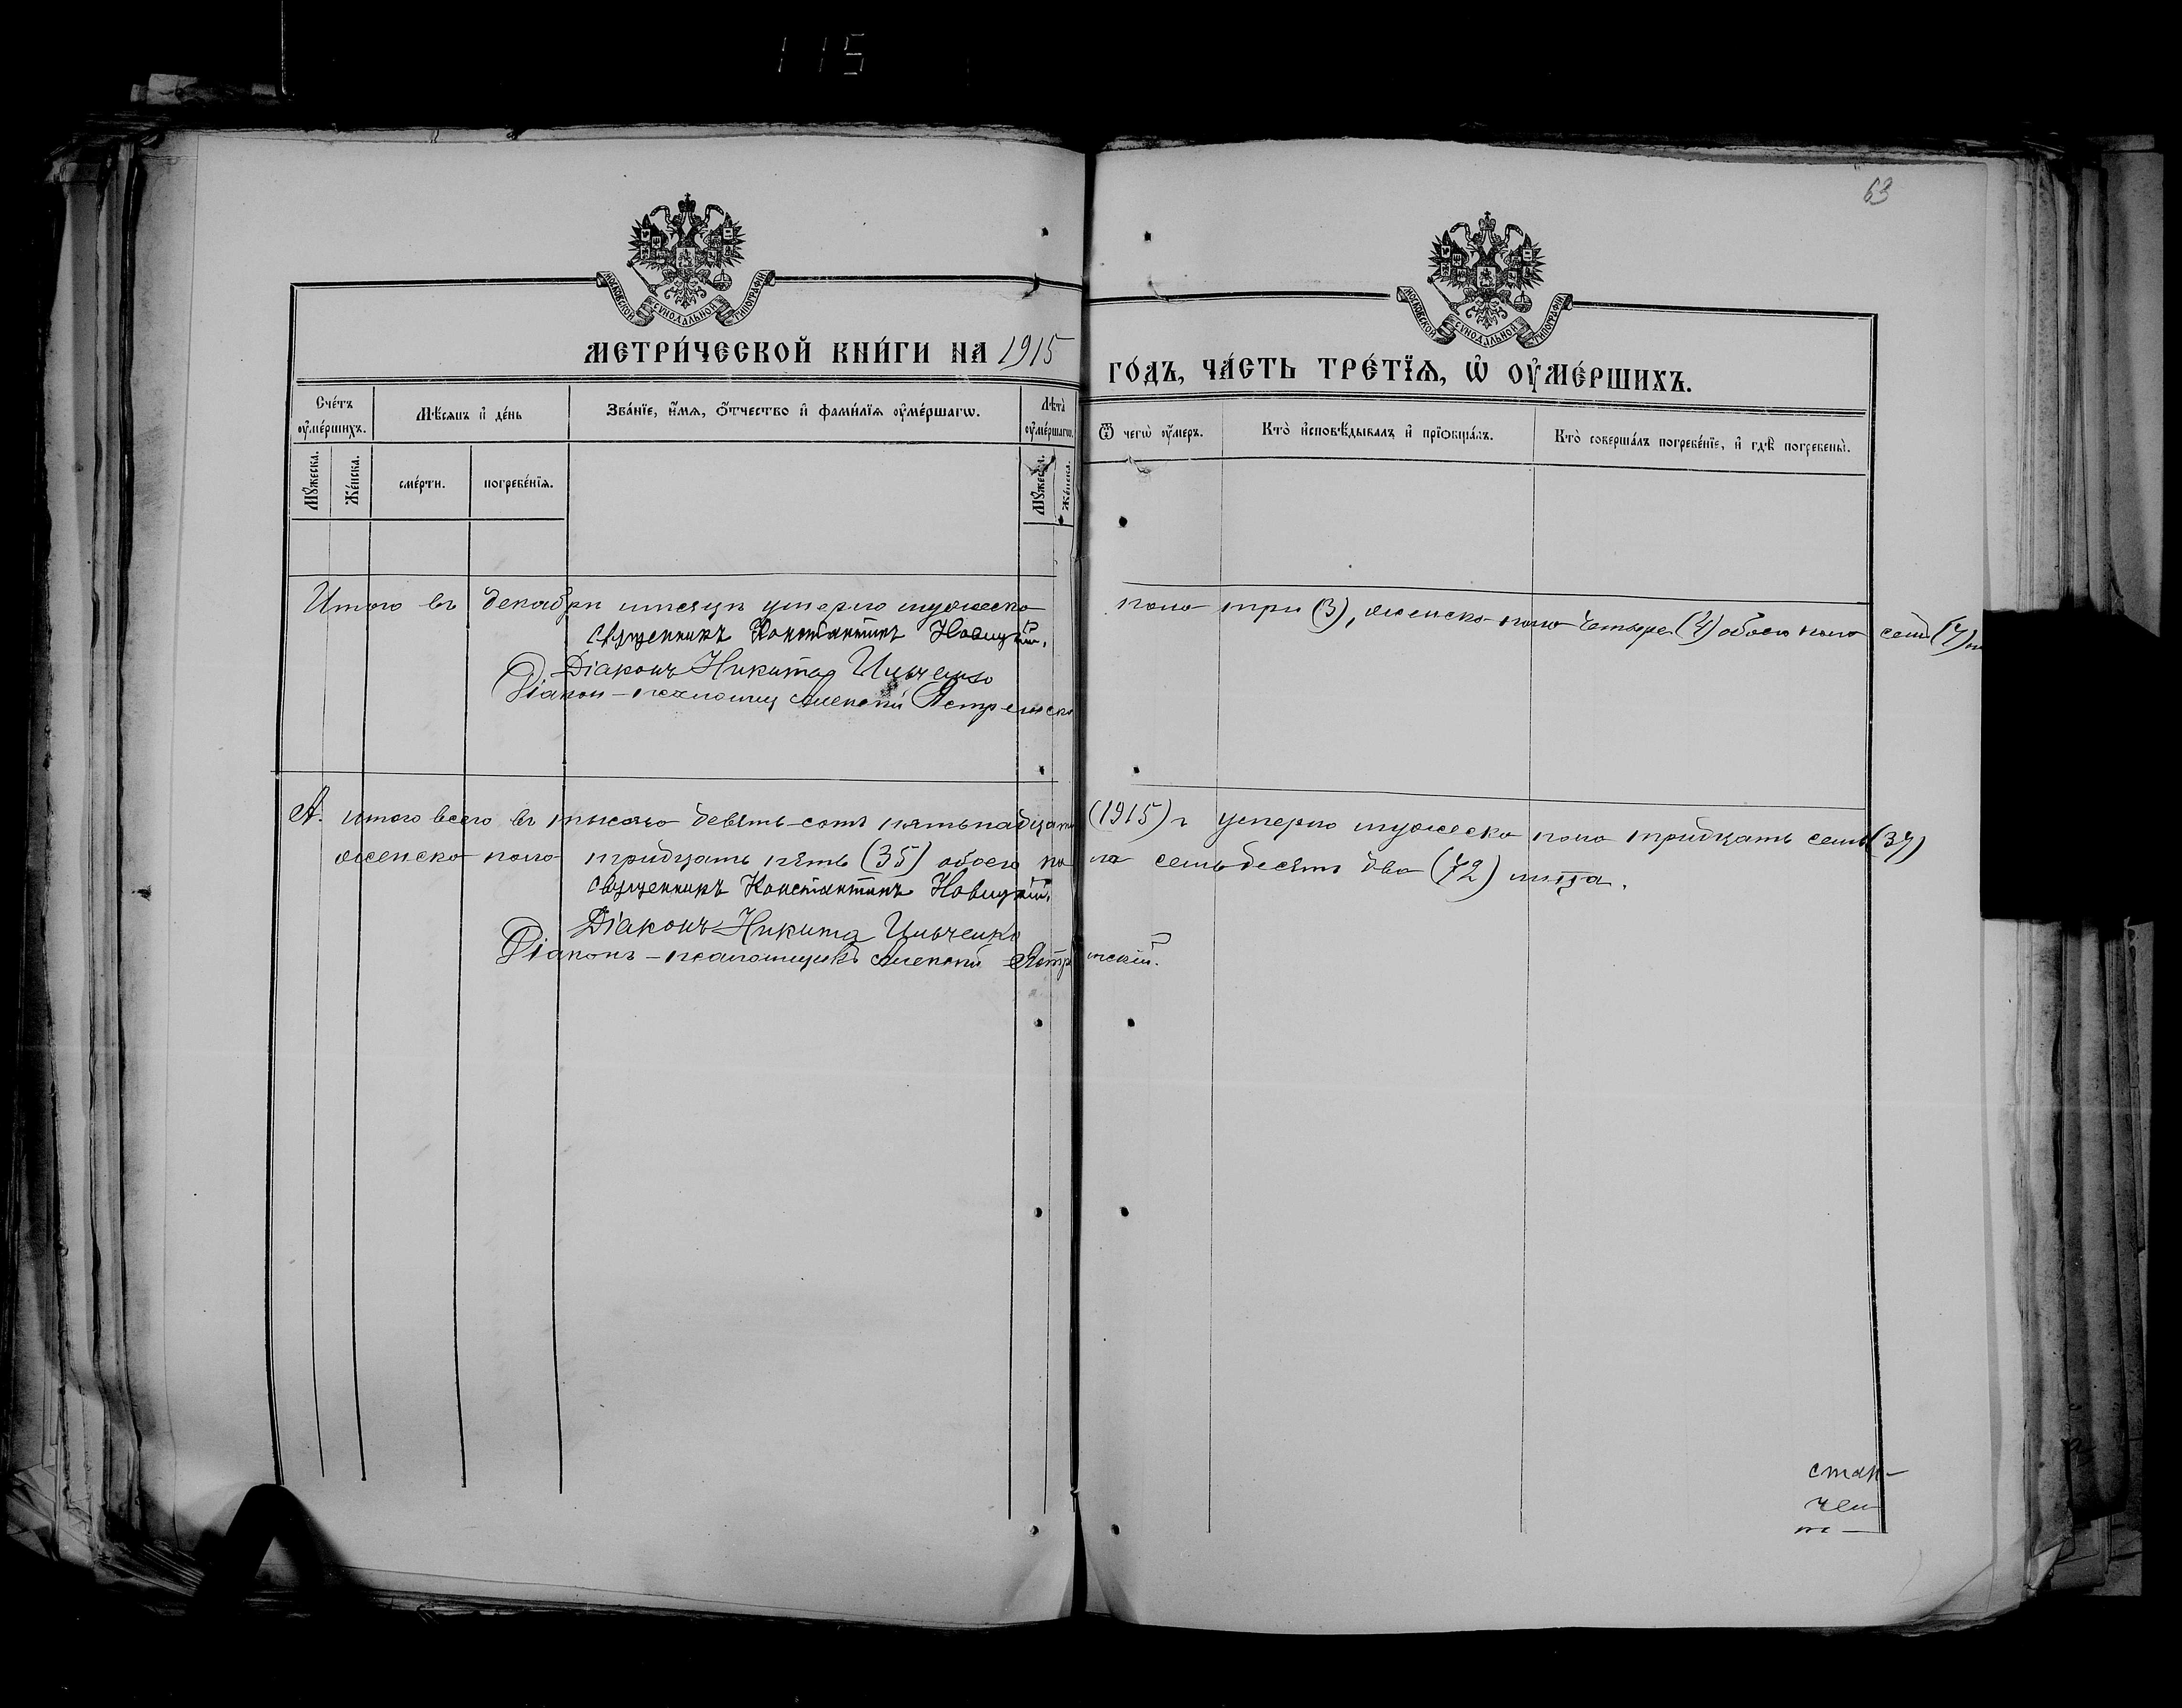 115
63
МОСКОВСКОЙ СѴНОДАЛЬНОЙ ТИПОГРАФІИ
МОСКОВСКОЙ СѴНОДАЛЬНОЙ ТИПОГРАФІИ
МЕТРИ́ЧЕСКОЙ КНИ́ГИ НА 1915 ГО́ДЪ, ЧА́СТЬ ТРЕ́ТЇѦ, Ѡ҆ ОУ҆МЕ́РШИХЪ.
Сче́тъ оу҆ме́ршихъ.
Мѣ́сяцъ и҆ де́нь
Зва́нїе, и҆́мѧ, ѻ҆́тчество и҆ фами́лїѧ оу҆ме́ршагѡ.
Лѣта̀ оу҆ме́ршагѡ.
Ѿ чегѡ̀ оу҆́меръ.
Кто̀ и҆сповѣ́дывалъ и҆ прїѻбща́лъ.
Кто̀ соверша́лъ погребе́нїе, и҆ гдѣ̀ погребены̀.
Мꙋ́жеска.
Же́нска.
сме́рти.
погребе́нїѧ.
Мꙋ́жеска.
Же́нска.
Итого въ декабрѣ мѣсяцѣ умерло мужеска пола три (3), женска пола четыре (4) обоего пола семь (7)
Священникъ Константинъ Новицкій.
Діаконъ Никита Ильченко
Діакон-псаломщ Алексѣй
А. итого всего въ тысяча девять-сотъ пятьнадцать (1915) г умерло мужеска пола тридцать семь (37)
женска пола тридцать пять (35) обоего пола семьдесятъ два (72) лица.
Священникъ Константинъ Новицкій.
Діаконъ Никита Ильченко
Діаконъ-псаломщикъ Алексѣй